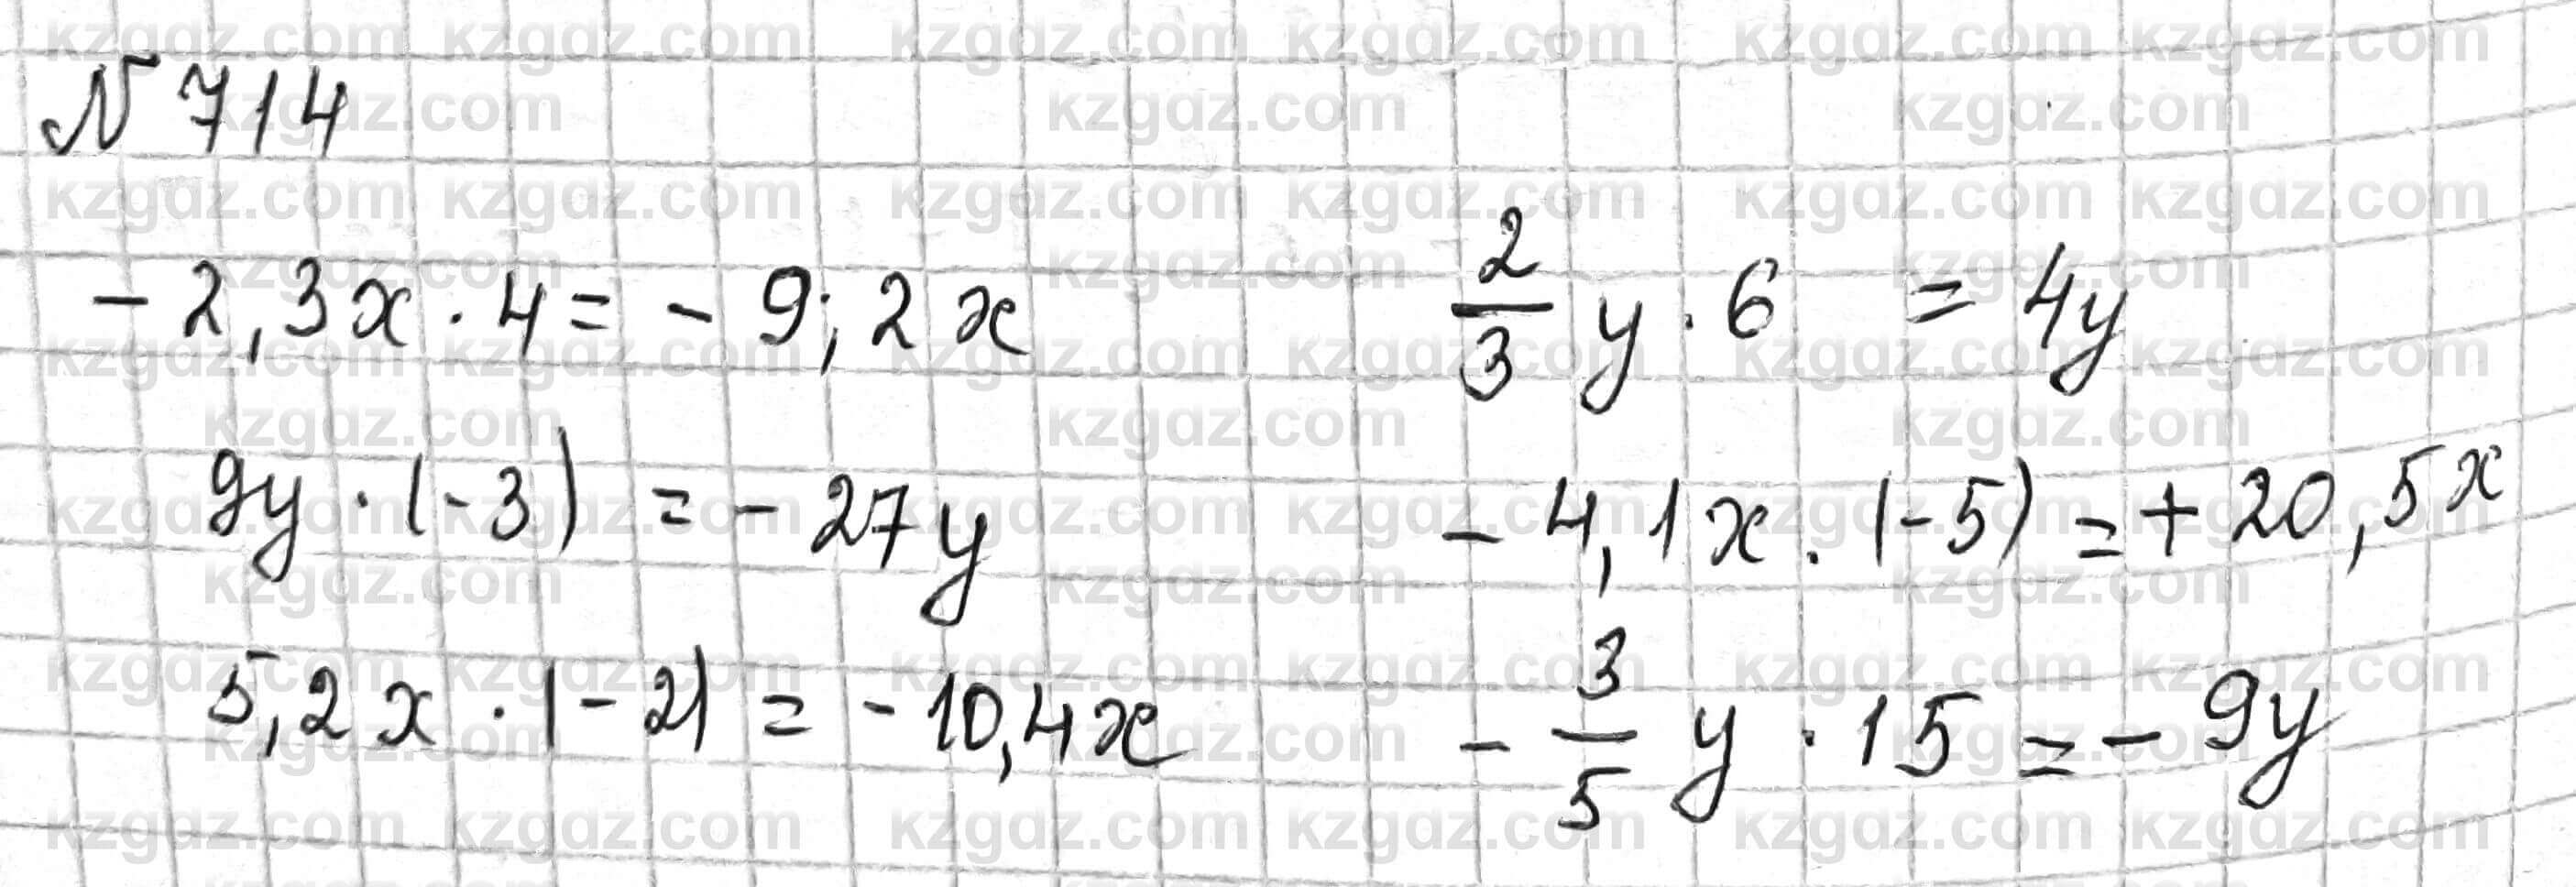 № 714
- 2,3x · 4 = - 9,2x
9y · (-3) = - 27y
5,2x · (-2) = - 10,4x
2/3 y · 6 = 4y
- 4,1x · (-5) = + 20,5x
- 3/5 y · 15 = - 9y
kzgdz.com